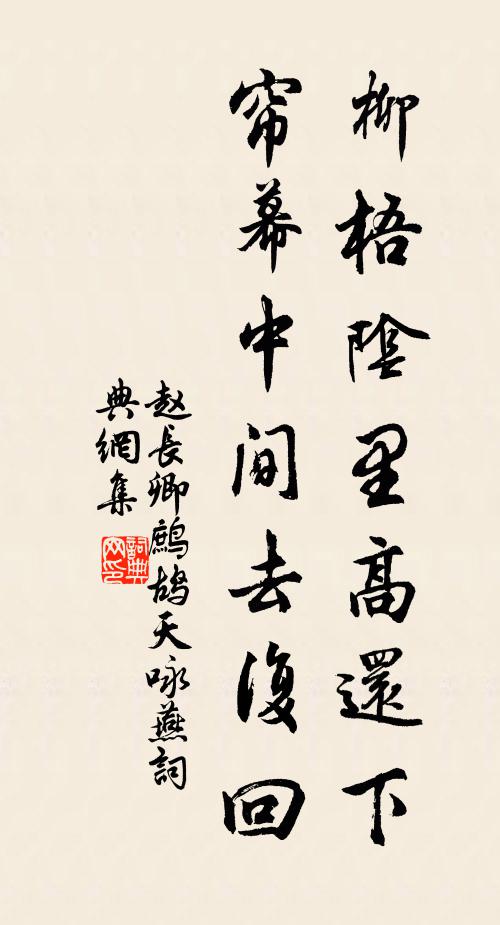 柳梧陰里高還下
帘幕中间去復回
赵長卿鷓鴣天咏燕詞
典網集
詞典网印